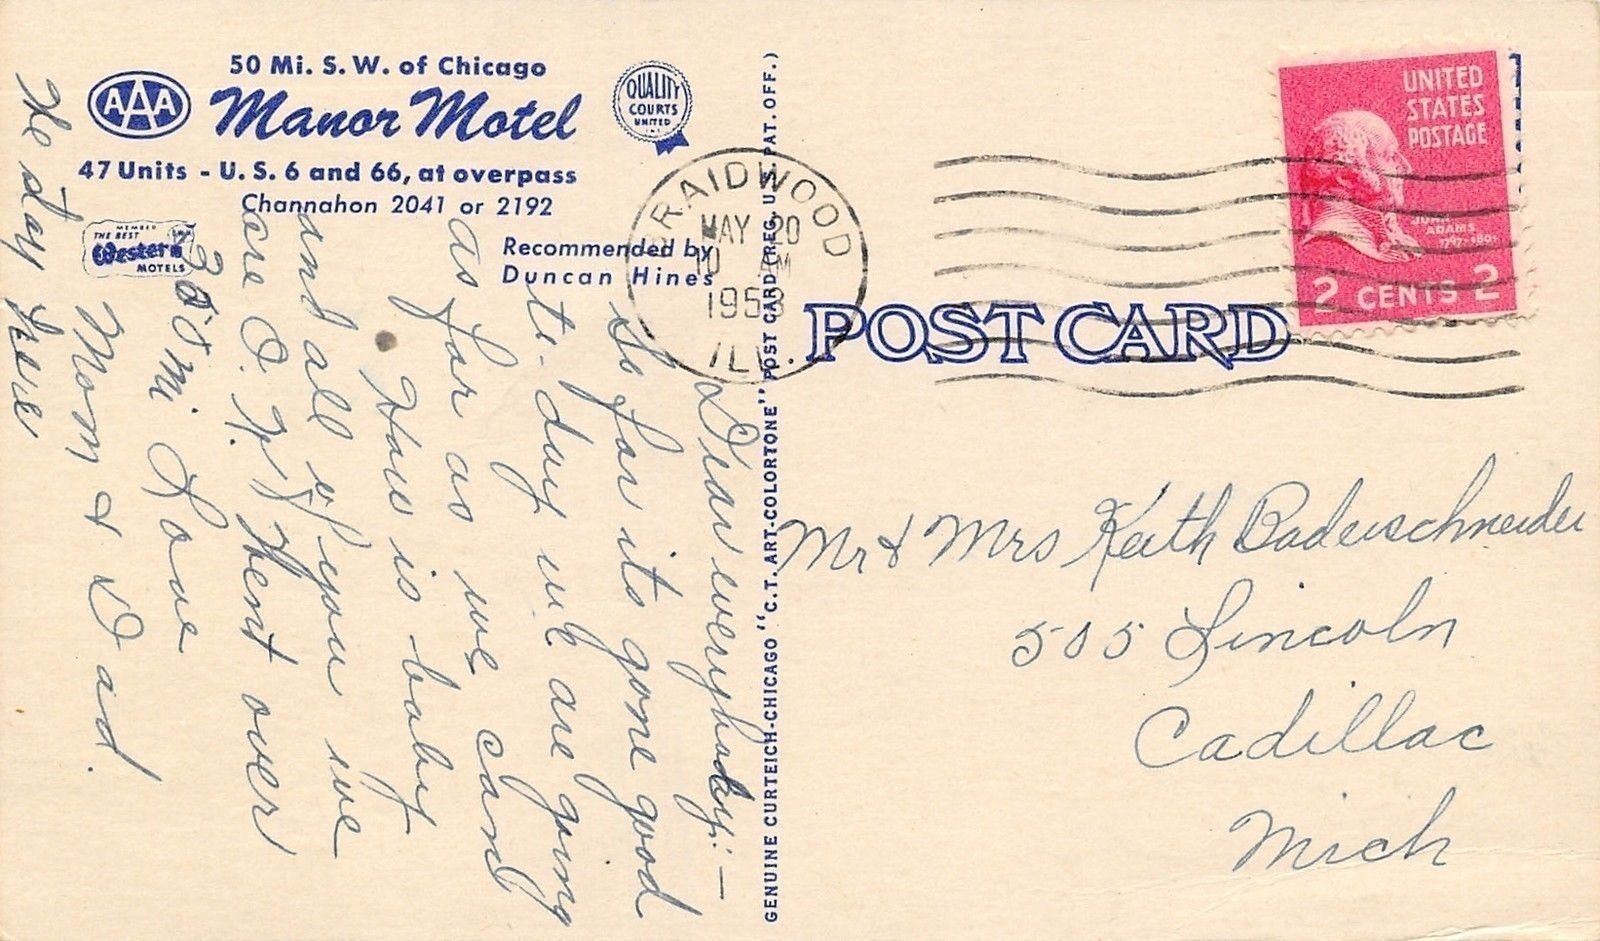 50 Mi. S. W. of Chicago
AAA
Manor Motel
QUALITY
COURTS
UNITED
INC.
47 Units - U. S. 6 and 66, at overpass
Channahon 2041 or 2192
MEMBER
THE BEST
Western
MOTELS
Recommended by
Duncan Hines
Dear everybody: -
So far its gone good
to-day we are going
as far as we can
How is baby
and all of you we
are O.K. Went over
300 mi Love
Mom & Dad.
We stay here
GENUINE CURTEICH-CHICAGO "C. T. ART-COLORTONE" POST CARD (REG. U.S. PAT. OFF.)
BRAIDWOOD
MAY 20
10 AM
1953
ILL.
POST CARD
UNITED
STATES
POSTAGE
JOHN
ADAMS
1797-1801
2 CENTS 2
Mr & Mrs Keith Baderschneider
505 Lincoln
Cadillac
Mich